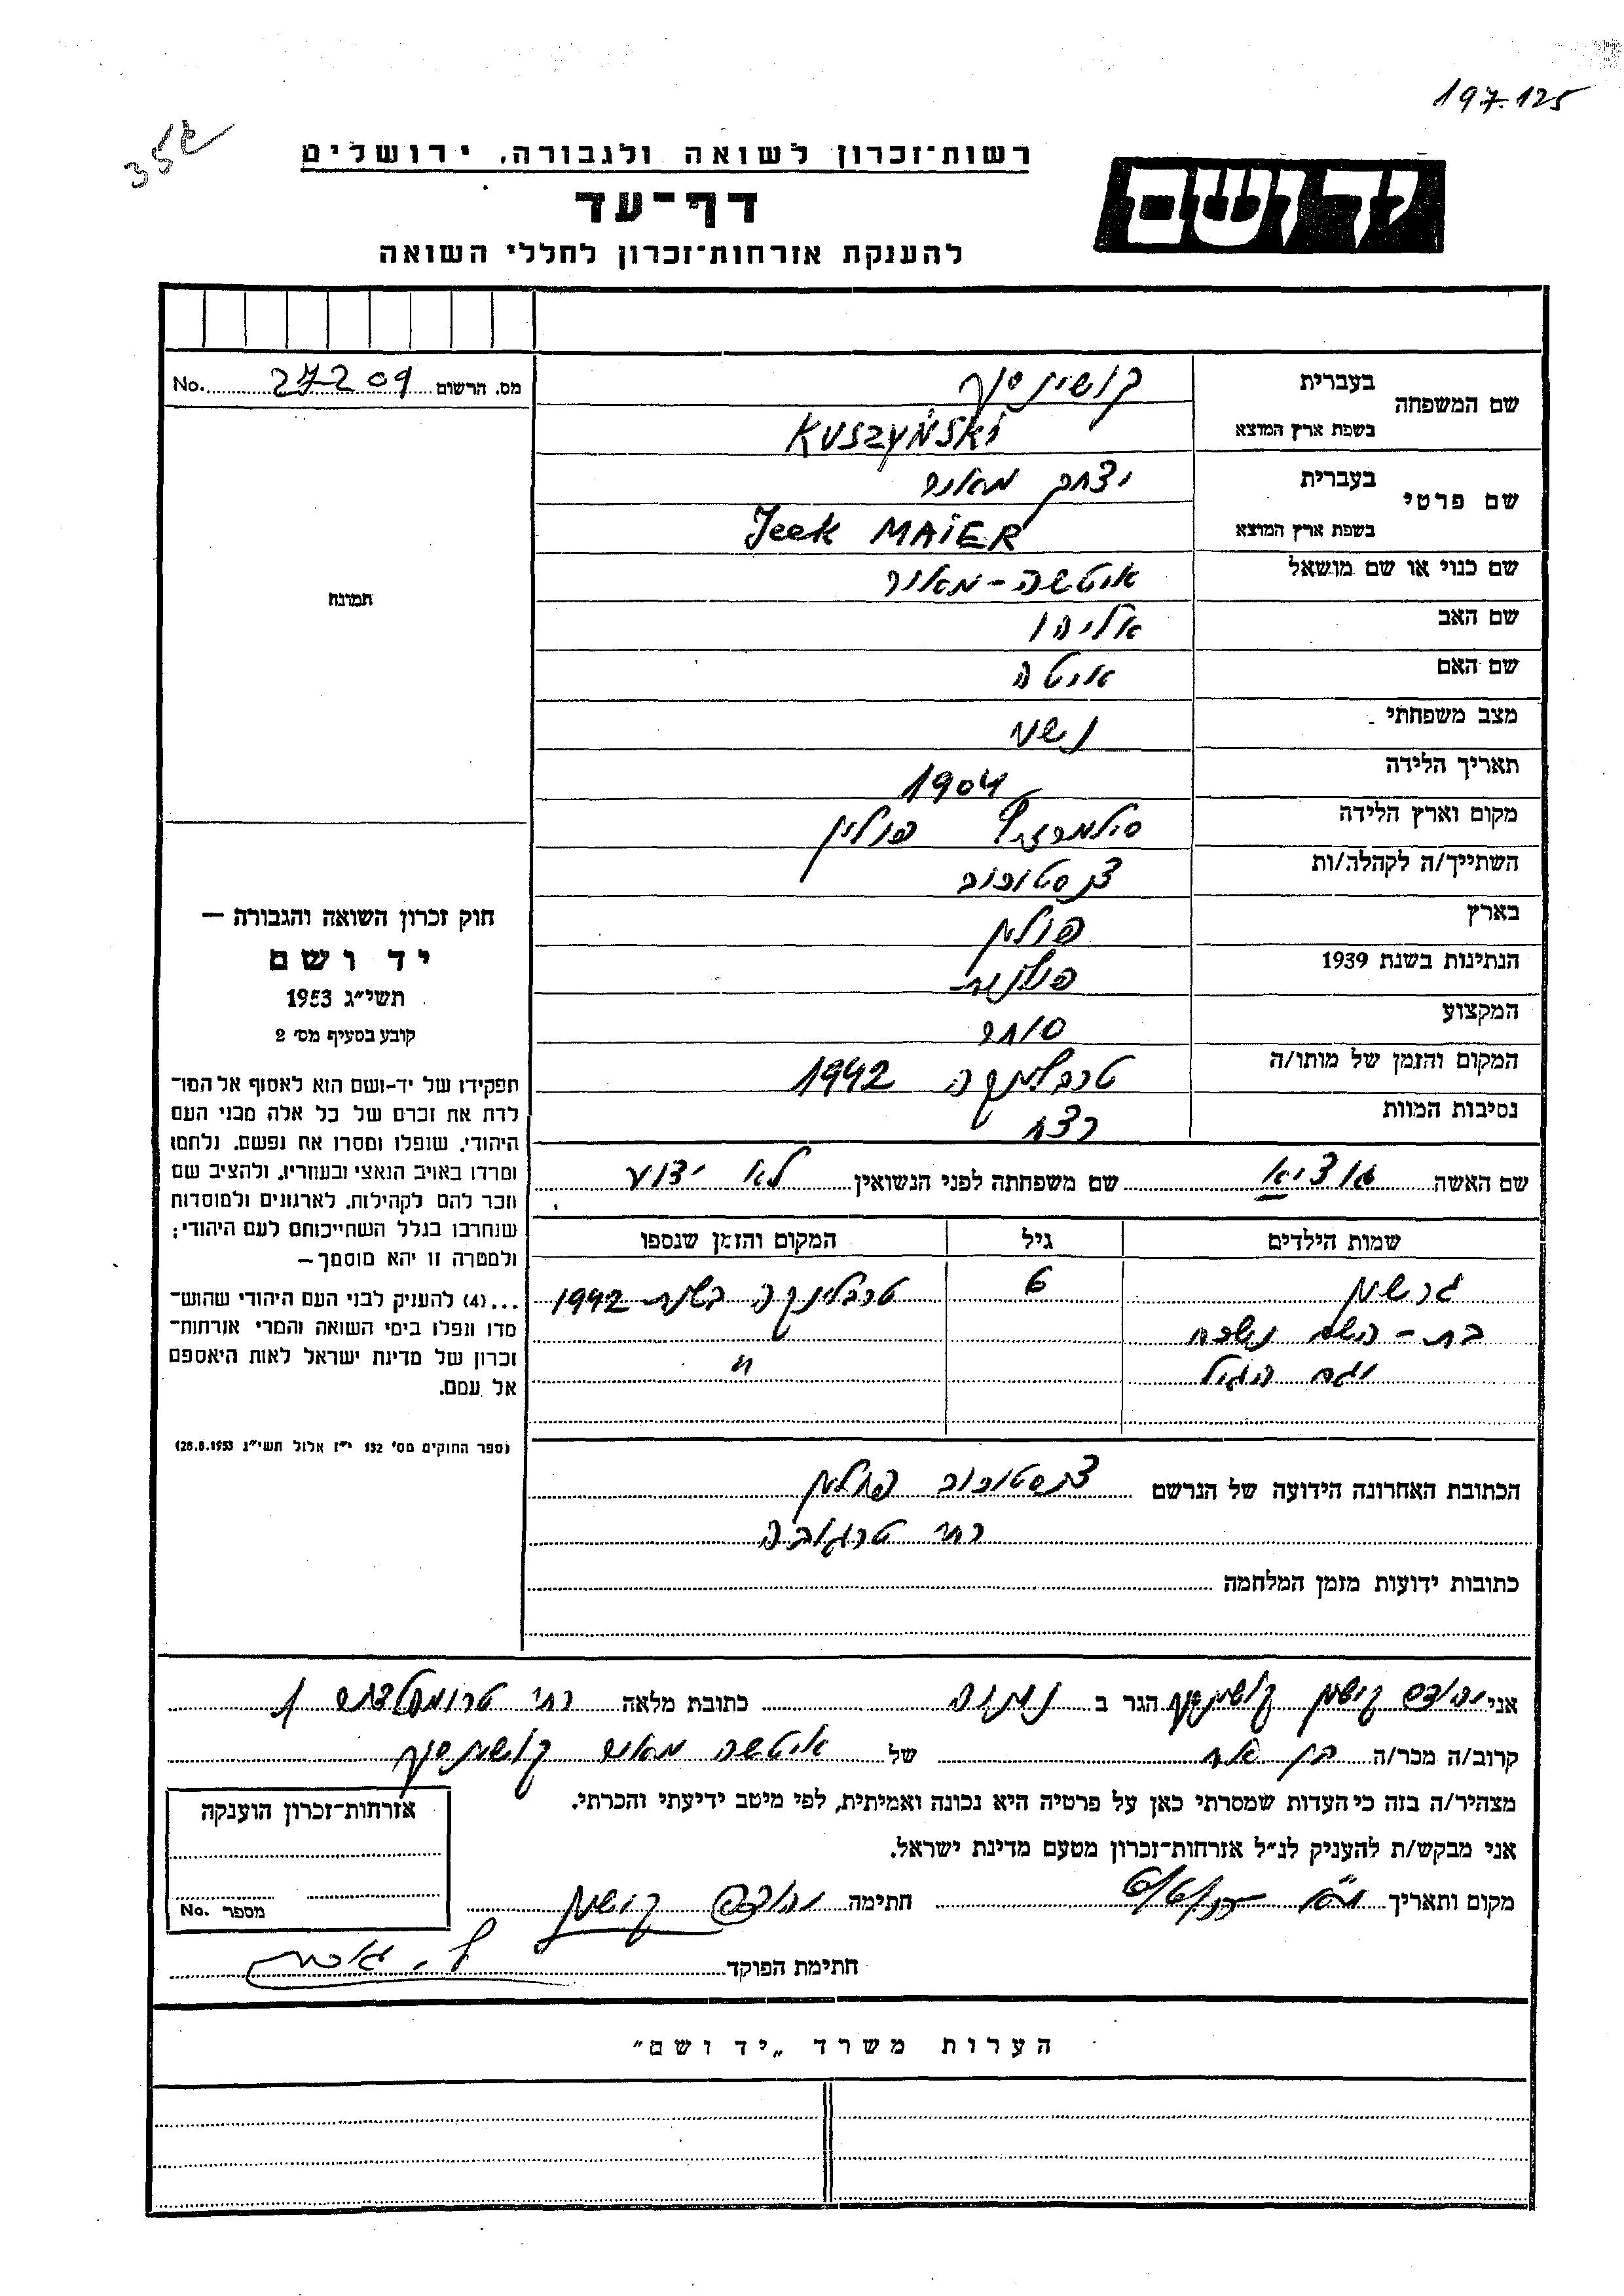 197.125
רשות־זכרון לשואה ולגבורה, ירושלים
יד ושם
דף־עד
להענקת אזרחות־זכרון לחללי השואה
מס. הרשום 27209 No.
שם המשפחה
בעברית קושינסקי
בשפת ארץ המוצא KUSZYŃSKI
שם פרטי
בעברית יצחק מאיר
בשפת ארץ המוצא Jcek MAIER
שם כנוי או שם מושאל איטשה-מאיר
שם האב אליהו
שם האם איטה
מצב משפחתי נשוי
תאריך הלידה 1904
מקום וארץ הלידה פולין
השתייך/ה לקהלה/ות צ'נסטוכוב
בארץ פולין
הנתינות בשנת 1939 פולנית
המקצוע סוחר
המקום והזמן של מותו/ה טרבלינקה 1942
נסיבות המוות רצח
תמונה
שם האשה שם משפחתה לפני הנשואין לא ידוע
שמות הילדים גיל המקום והזמן שנספו
גרשון 6 טרבלינקה בשנת 1942
בת - השם נשכח
וגם הגיל "
הכתובת האחרונה הידועה של הנרשם צ'נסטוכוב פולין
רח' טרגובה
כתובות ידועות מזמן המלחמה
חוק זכרון השואה והגבורה —
יד ושם
תשי״ג 1953
קובע בסעיף מס׳ 2
תפקידו של יד־ושם הוא לאסוף אל המו־
לדת את זכרם של כל אלה מבני העם
היהודי, שנפלו ומסרו את נפשם, נלחמו
ומרדו באויב הנאצי ובעוזריו, ולהציב שם
וזכר להם לקהילות, לארגונים ולמוסדות
שנחרבו בגלל השתייכותם לעם היהודי;
ולמטרה זו יהא מוסמך—
...(4) להעניק לבני העם היהודי שהוש־
מדו ונפלו בימי השואה והמרי אזרחות־
זכרון של מדינת ישראל לאות היאספם
אל עמם.
(ספר החוקים מס׳ 132 י״ז אלול תשי״ג 28.8.1953)
אני יהודה קושן קושינסקי הגר ב נתניה כתובת מלאה רח' טרומפלדור
קרוב/ה מכר/ה בן אח של איטשה מאיר קושינסקי
מצהיר/ה בזה כי העדות שמסרתי כאן על פרטיה היא נכונה ואמיתית, לפי מיטב ידיעתי והכרתי.
אני מבקש/ת להעניק לנ״ל אזרחות־זכרון מטעם מדינת ישראל.
מקום ותאריך חתימה יהודה קושן
חתימת הפוקד
אזרחות־זכרון הוענקה
מספר No.
הערות משרד „יד ושם״